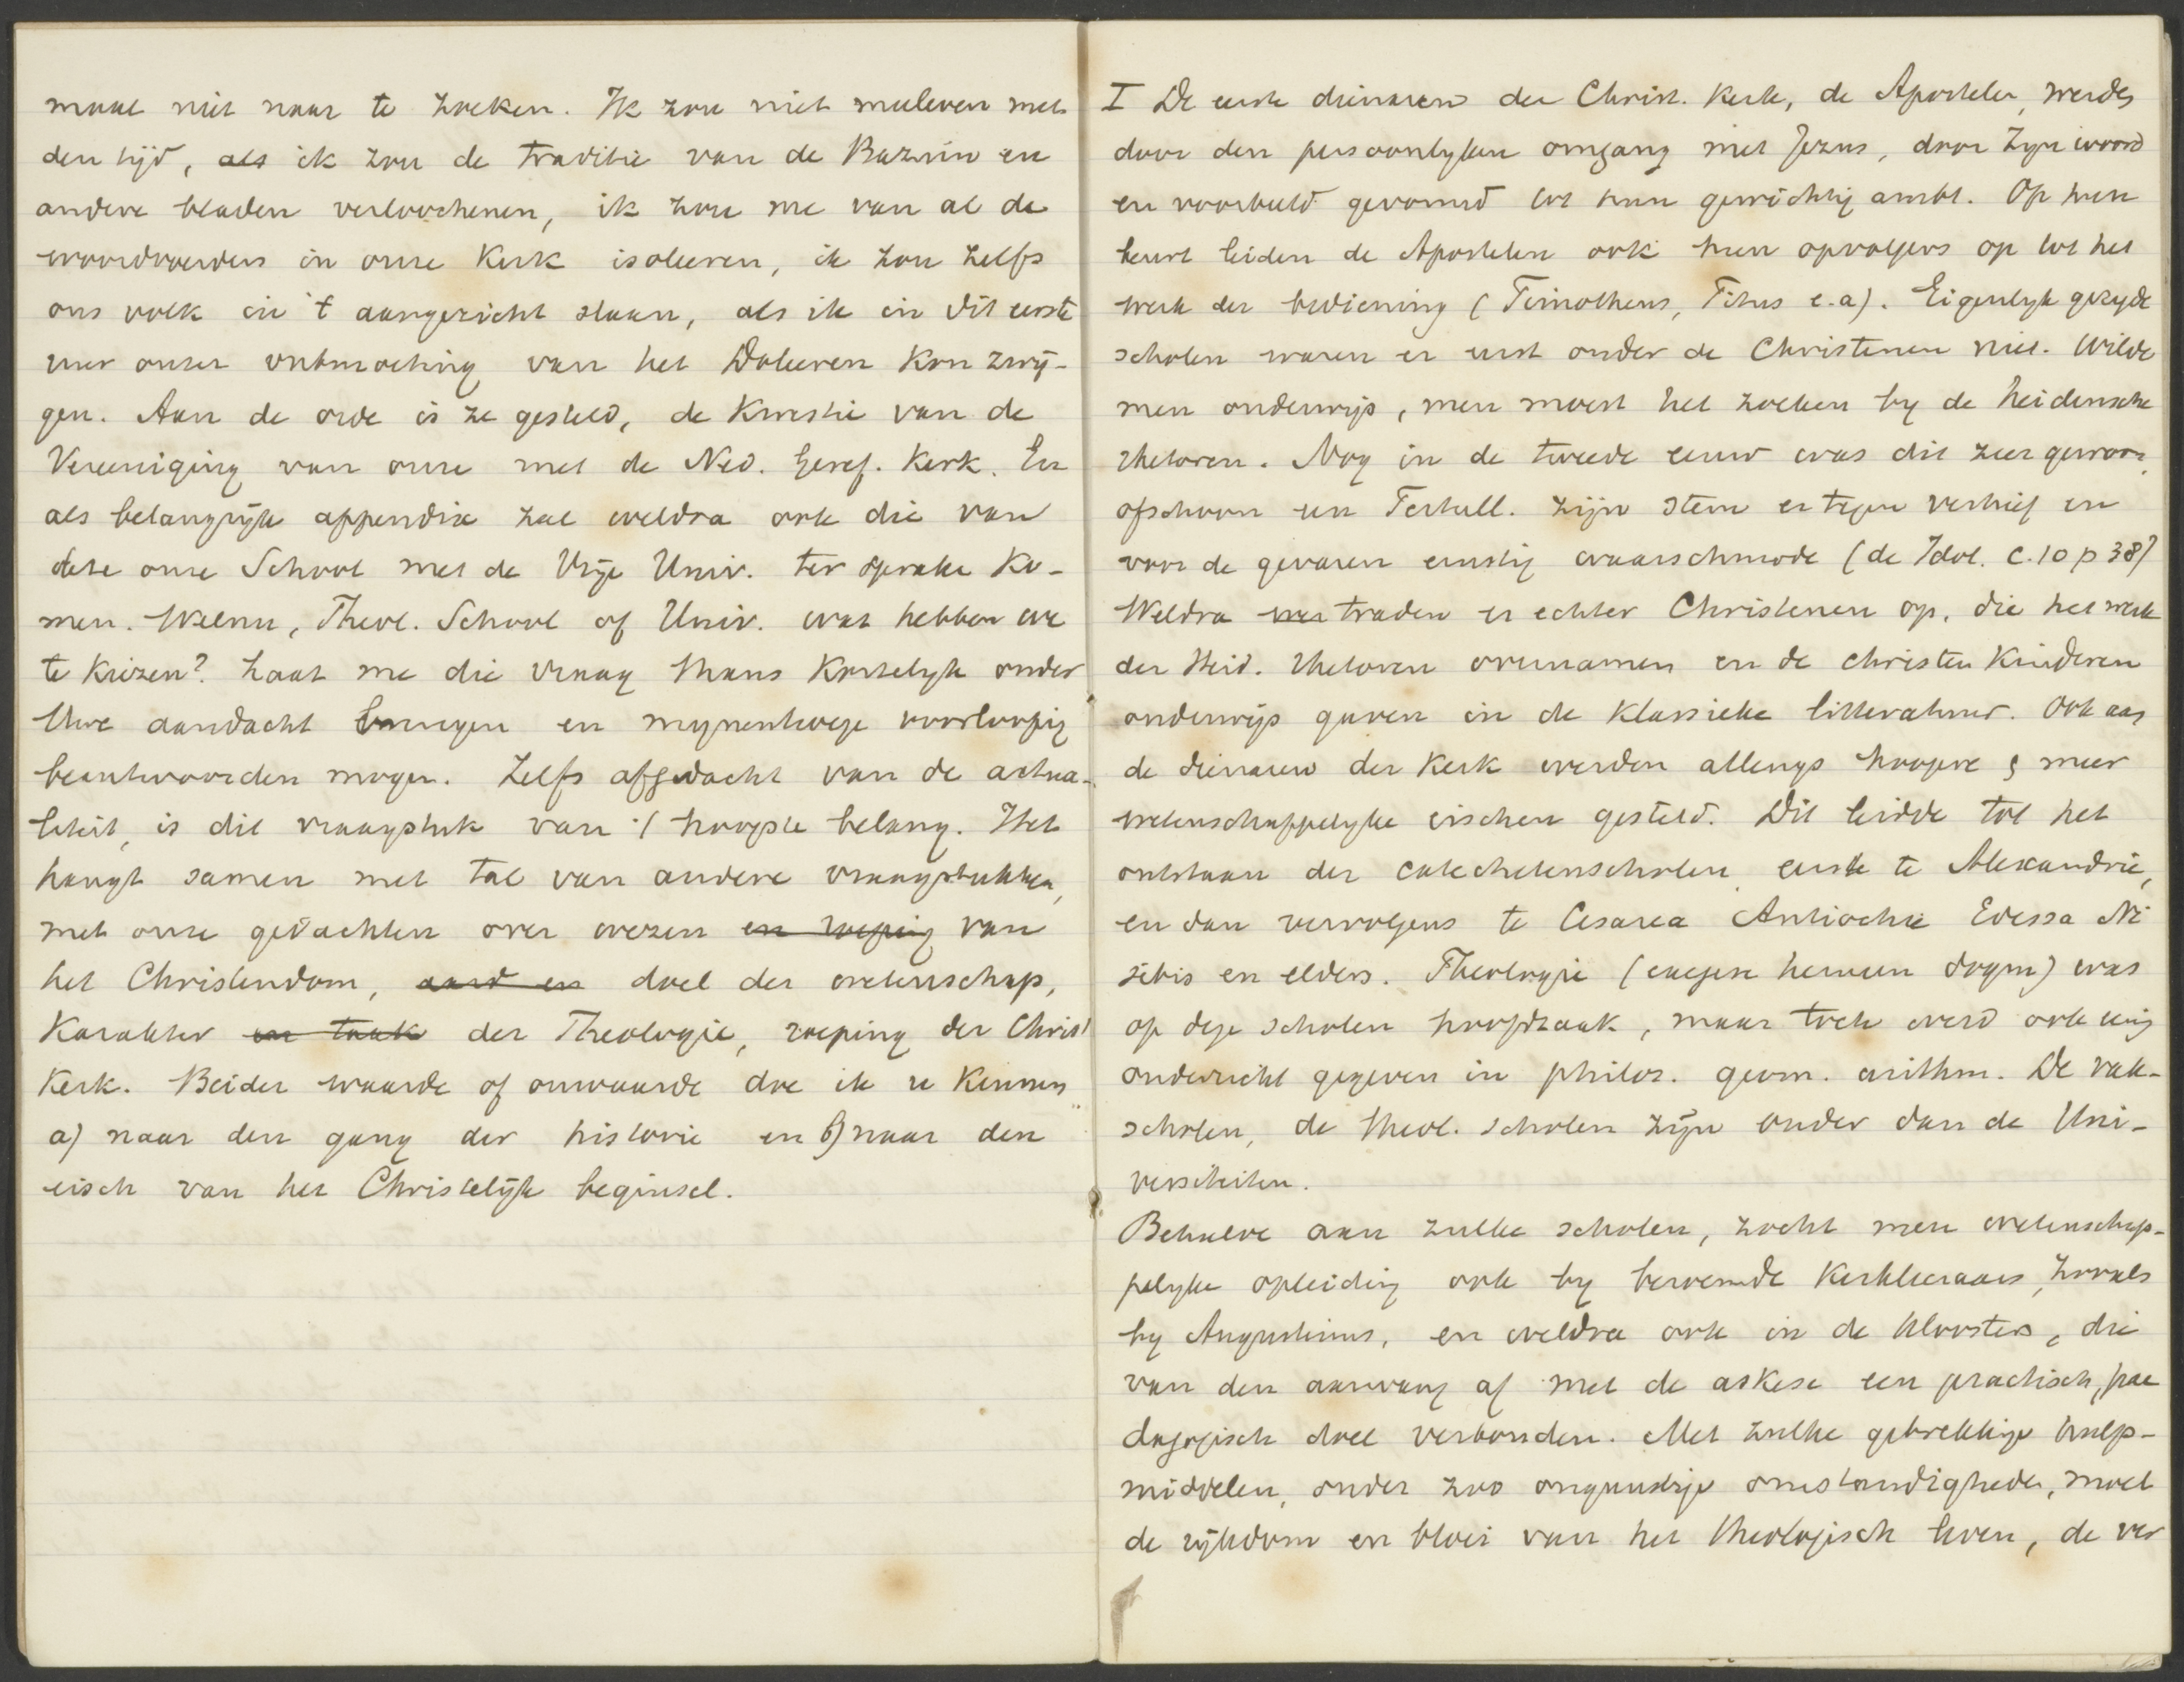 maal niet naar te zoeken. Ik zou niet meeleven met
den tijd, als ik zou de traditie van de Bazuin en
andere bladen verloochenen, ik zou me van al de
woordvoerders in onze Kerk isoleeren, ik zou zelfs
ons volk in 't aangezicht slaan, als ik in dit eerste
uur onzer ontmoeting van het Doleeren kon zwij-
gen. Aan de orde is ze gesteld, de Kwestie van de
Vereeniging van onze met de Ned. Geref. Kerk. En
als belangrijk appendix zal weldra ook die van
deze onze School met de Vrije Univ. ter sprake ko-
men. Welnu, Theol. School of Univ. wat hebben we
te kiezen? Laat me die vraag thans kortelyk onder
Uwe aandacht brengen en mynentwege voorloopig
beantwoorden mogen. Zelfs afgedacht van de actua-
liteit, is dit vraagstuk van 't hoogste belang. Het
hangt samen met tal van andere vraagstukken,
met onze gedachten over wezen en roeping van
het Christendom, aard en doel der wetenschap,
Karakter en taak der Theologie, roeping der Christ
Kerk. Beider waarde of onwaarde doe ik u kennen
a) naar den gang der historie en b) naar den
eisch van het Christelijk beginsel.
I De eerste dienaren der Christ. Kerk, de Apostelen, werden
door den persoonlyken omgang met Jezus, door Zyn woord
en voorbeeld gevormd tot hun gewichtig ambt. Op hun
beurt leiden de Apostelen ook hun opvolgers op tot het
werk der bediening (Timotheus, Titus e.a). Eigenlyk gezegde
scholen waren er eerst onder de Christenen niet. Wilde
men onderwijs, men moest het zoeken by de heidensche
rhetoren. Nog in de tweede eeuw was dit zeer gewoon,
ofschoon een Tertull. zijn stem er tegen verhief en
voor de gevaren ernstig waarschuwde (de Idol. c. 10 p 38)
Weldra traden er echter Christenen op, die het werk
der Heid. rhetoren overnamen en de christen kinderen
onderwijs gaven in de Klassieke litteratuur. Ook aan
de dienaren der Kerk werden allengs hoogere & meer
wetenschappelyke eischen gesteld. Dit leidde tot het
ontstaan der catechetenscholen eerst te Alexandrie,
en dan vervolgens te Cesarea Antiochie Edessa Ni
sibis en elders. Theologie (exegese hermen dogm) was
op deze scholen hoofdzaak, maar toch werd ook eenig
onderricht gegeven in philos. geom. arithm. De vak-
scholen, de theol. scholen zijn ouder dan de Uni-
versiteiten.
Behalve aan zulke scholen, zocht men wetenschap-
pelyke opleiding ook by beroemde Kerkleeraars, zooals
by Augustinus, en weldra ook in de Kloosters, die
van den aanvang af met de askese een practisch, pae
dagogisch doel verbonden. Met zulke gebrekkige hulp-
middelen, onder zoo ongunstige omstandigheden, moet
de rijkdom en bloei van het theologisch leven, de ver